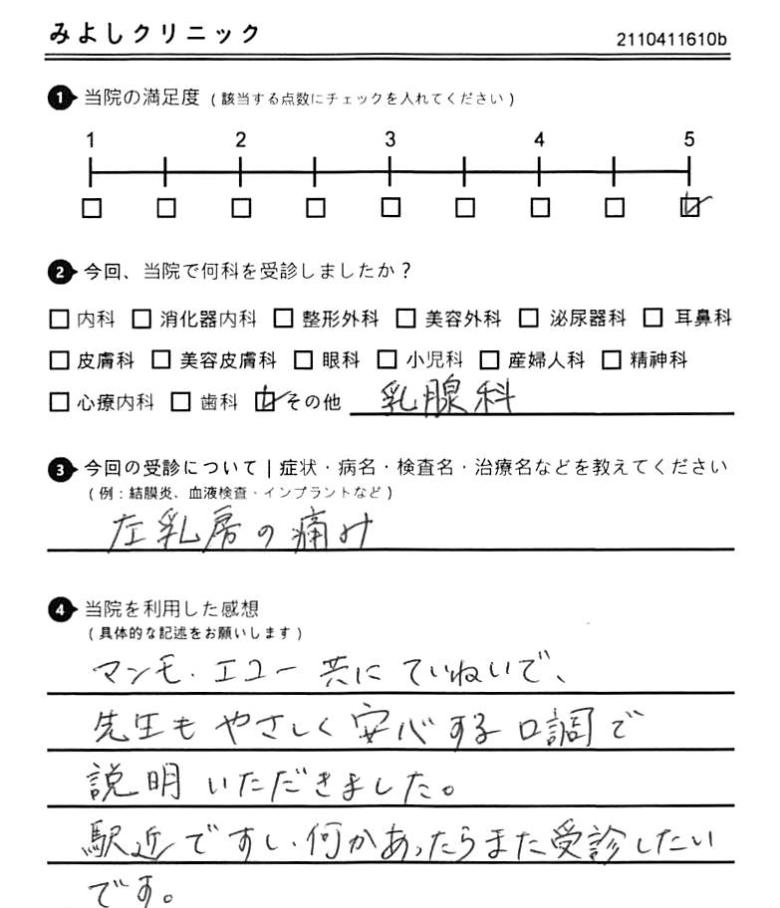 みよしクリニック
2110411610b
1 当院の満足度 (該当する点数にチェックを入れてください)
1 2 3 4 5
2 今回、当院で何科を受診しましたか?
内科 消化器内科 整形外科 美容外科 泌尿器科 耳鼻科
皮膚科 美容皮膚科 眼科 小児科 産婦人科 精神科
心療内科 歯科 その他 乳腺科
3 今回の受診について | 症状・病名・検査名・治療名などを教えてください
(例:結膜炎、血液検査・インプラントなど)
左乳房の痛み
4 当院を利用した感想
(具体的な記述をお願いします)
マンモ・エコー共にていねいで、
先生もやさしく安心する口調で
説明いただきました。
駅近ですし、何かあったらまた受診したい
です。